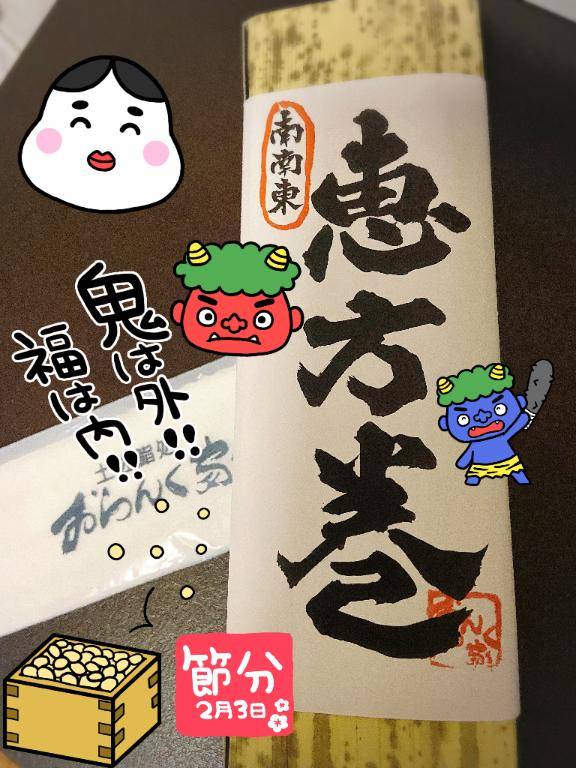 南南東
恵方巻
鬼は外!!
福は内!!
おらんく家
節分
2月3日